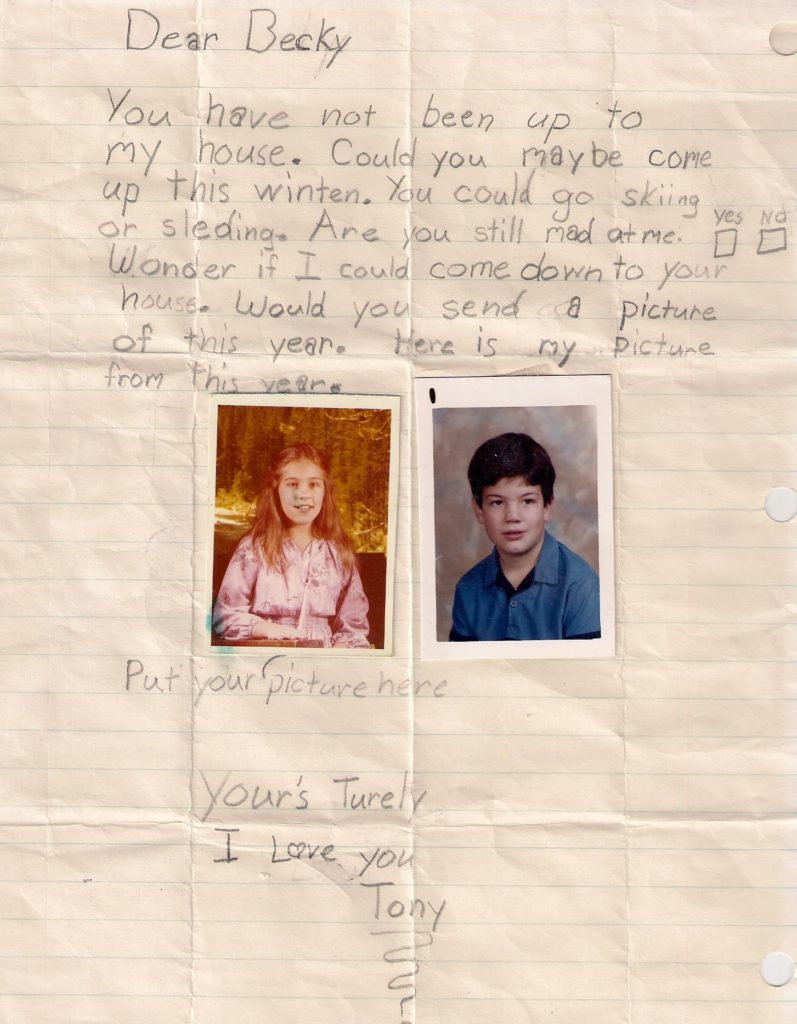 Dear Becky
You have not been up to
my house. Could you maybe come
up this winten. You could go skiing
or sleding. Are you still mad at me. Yes No
Wonder if I could come down to your
house. Would you send a picture
of this year. Here is my picture
from this year.
Put your picture here
Your's Turely
I Love you
Tony